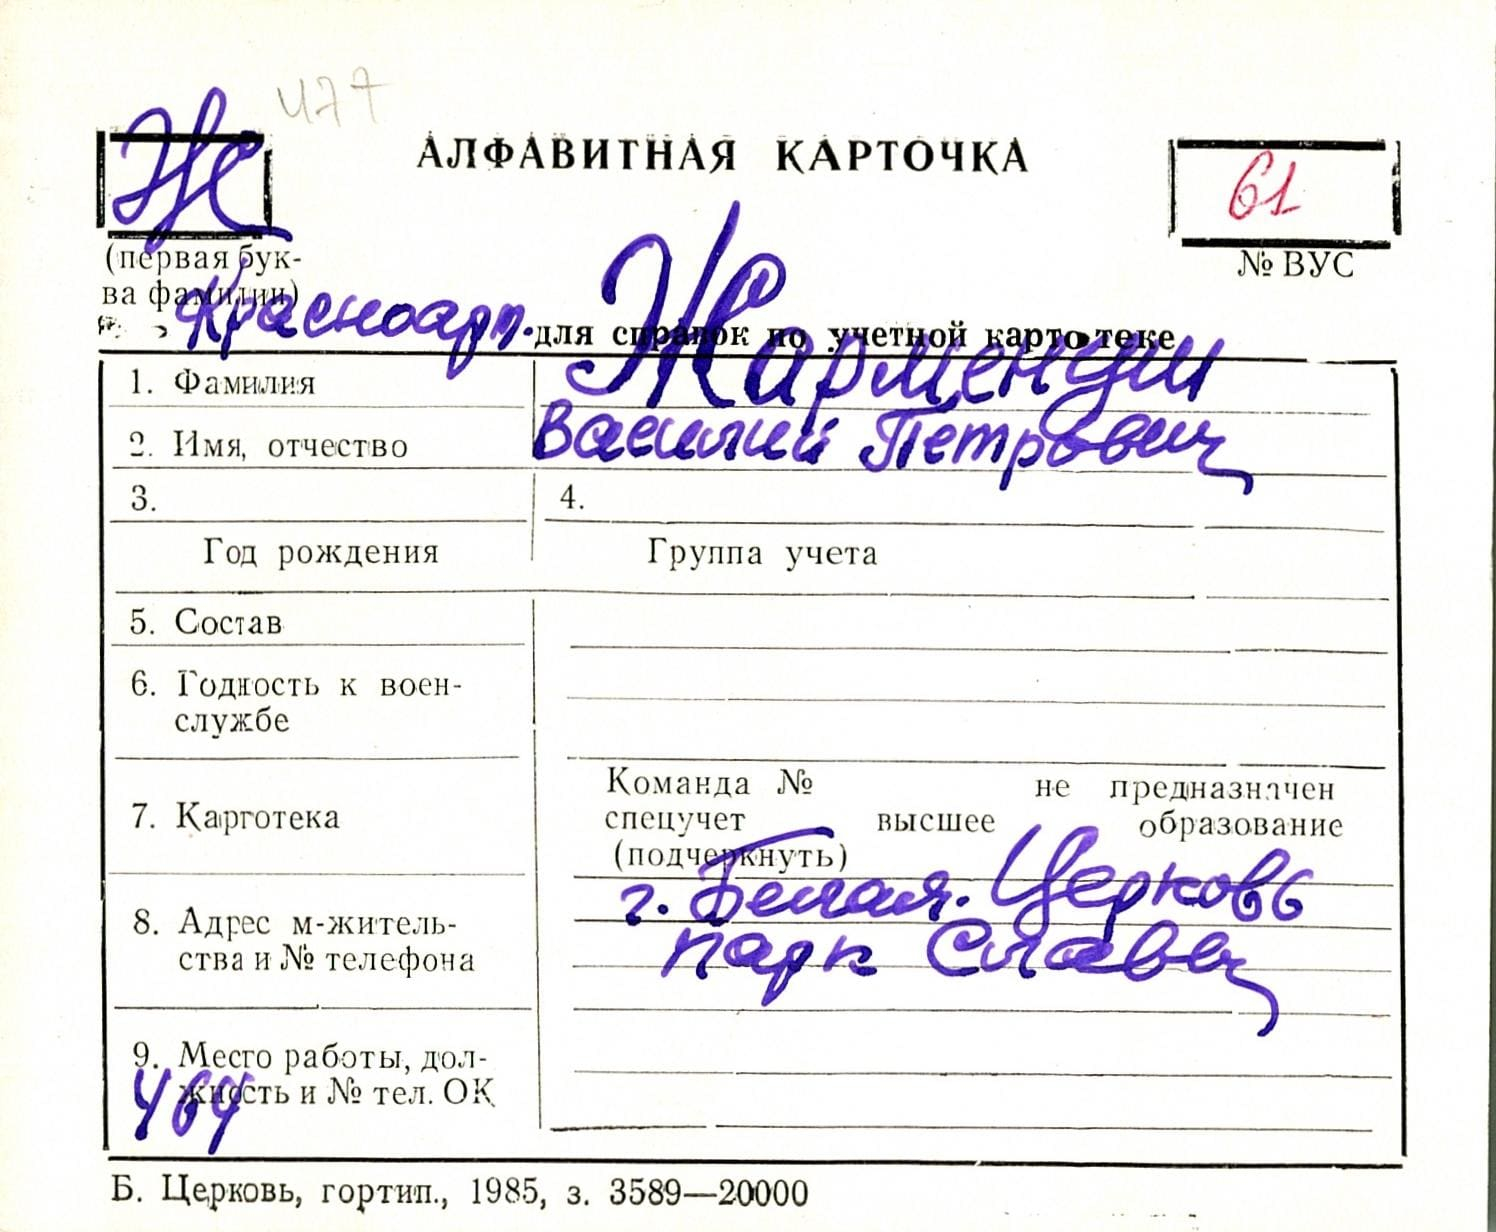 477
Ж
АЛФАВИТНАЯ КАРТОЧКА
61
(первая бук-
ва фамилии)
№ ВУС
Красноарм.
для справок по учетной картотеке
1. Фамилия
Жарменции
2. Имя, отчество
Василий Петрович
3.
4.
Год рождения
Группа учета
5. Состав
6. Годность к воен-
службе
7. Карготека
Команда № не предназначен
спецучет высшее образование
(подчеркнуть)
8. Адрес м-житель-
ства и № телефона
г. Белая. Церковь
парк Славы
9. Место работы, дол-
жность и № тел. ОК
464
Б. Церковь, гортип., 1985, з. 3589—20000